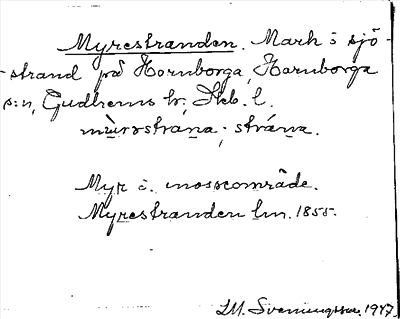 Myrestranden. Mark i sjö-
-strand på Hornborga, Hornborga
s:n, Gudhems hr, Skb. l.
mùrəstrana; strána.
Myr i. mosseområde.
Myrestranden lm. 1855.
I.M. Svenungsson. 1947.